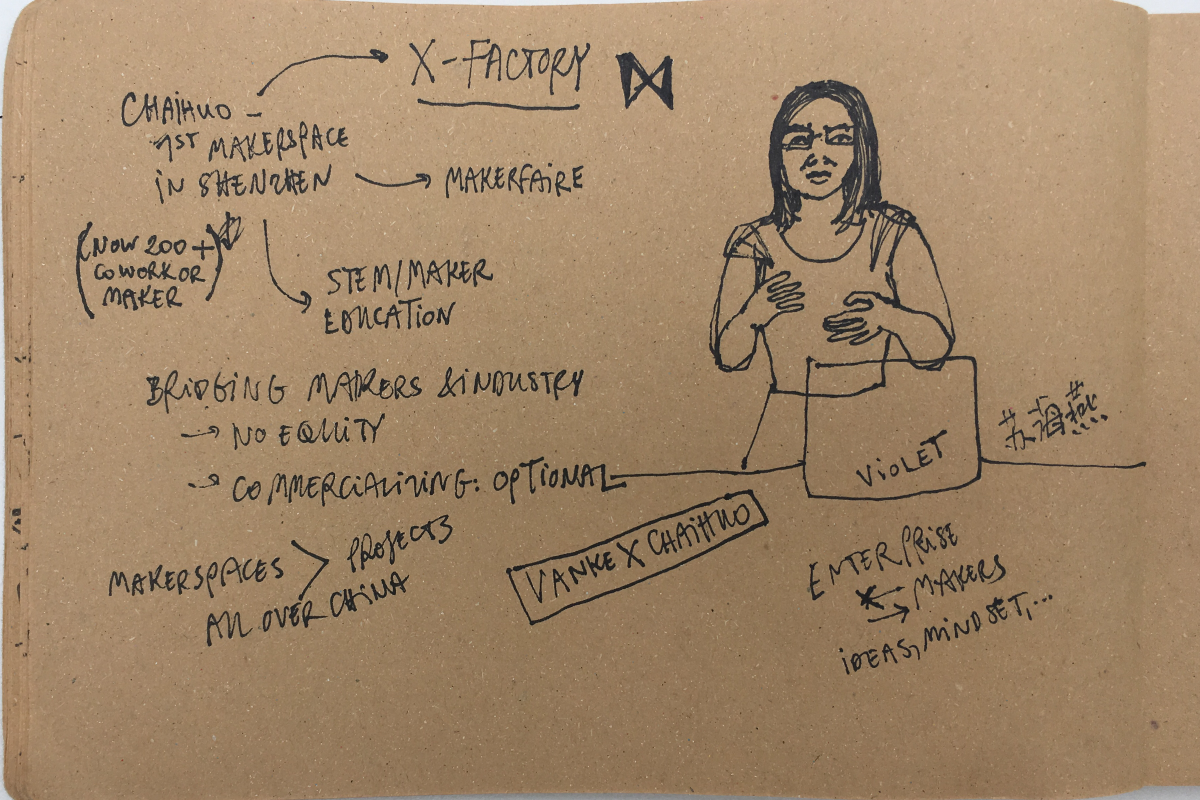 X-FACTORY
CHAIHUO –
1ST MAKERSPACE
IN SHENZHEN
MAKERFAIRE
(NOW 200+
COWORK OR
MAKER)
STEM/MAKER
EDUCATION
BRIDGING MAKERS & INDUSTRY
→ NO EQUITY
→ COMMERCIALIZING: OPTIONAL
MAKERSPACES > PROJECTS
ALL OVER CHINA
VANKE X CHAIHUO
VIOLET
苏海燕
ENTERPRISE
MAKERS
IDEAS, MINDSET, ...